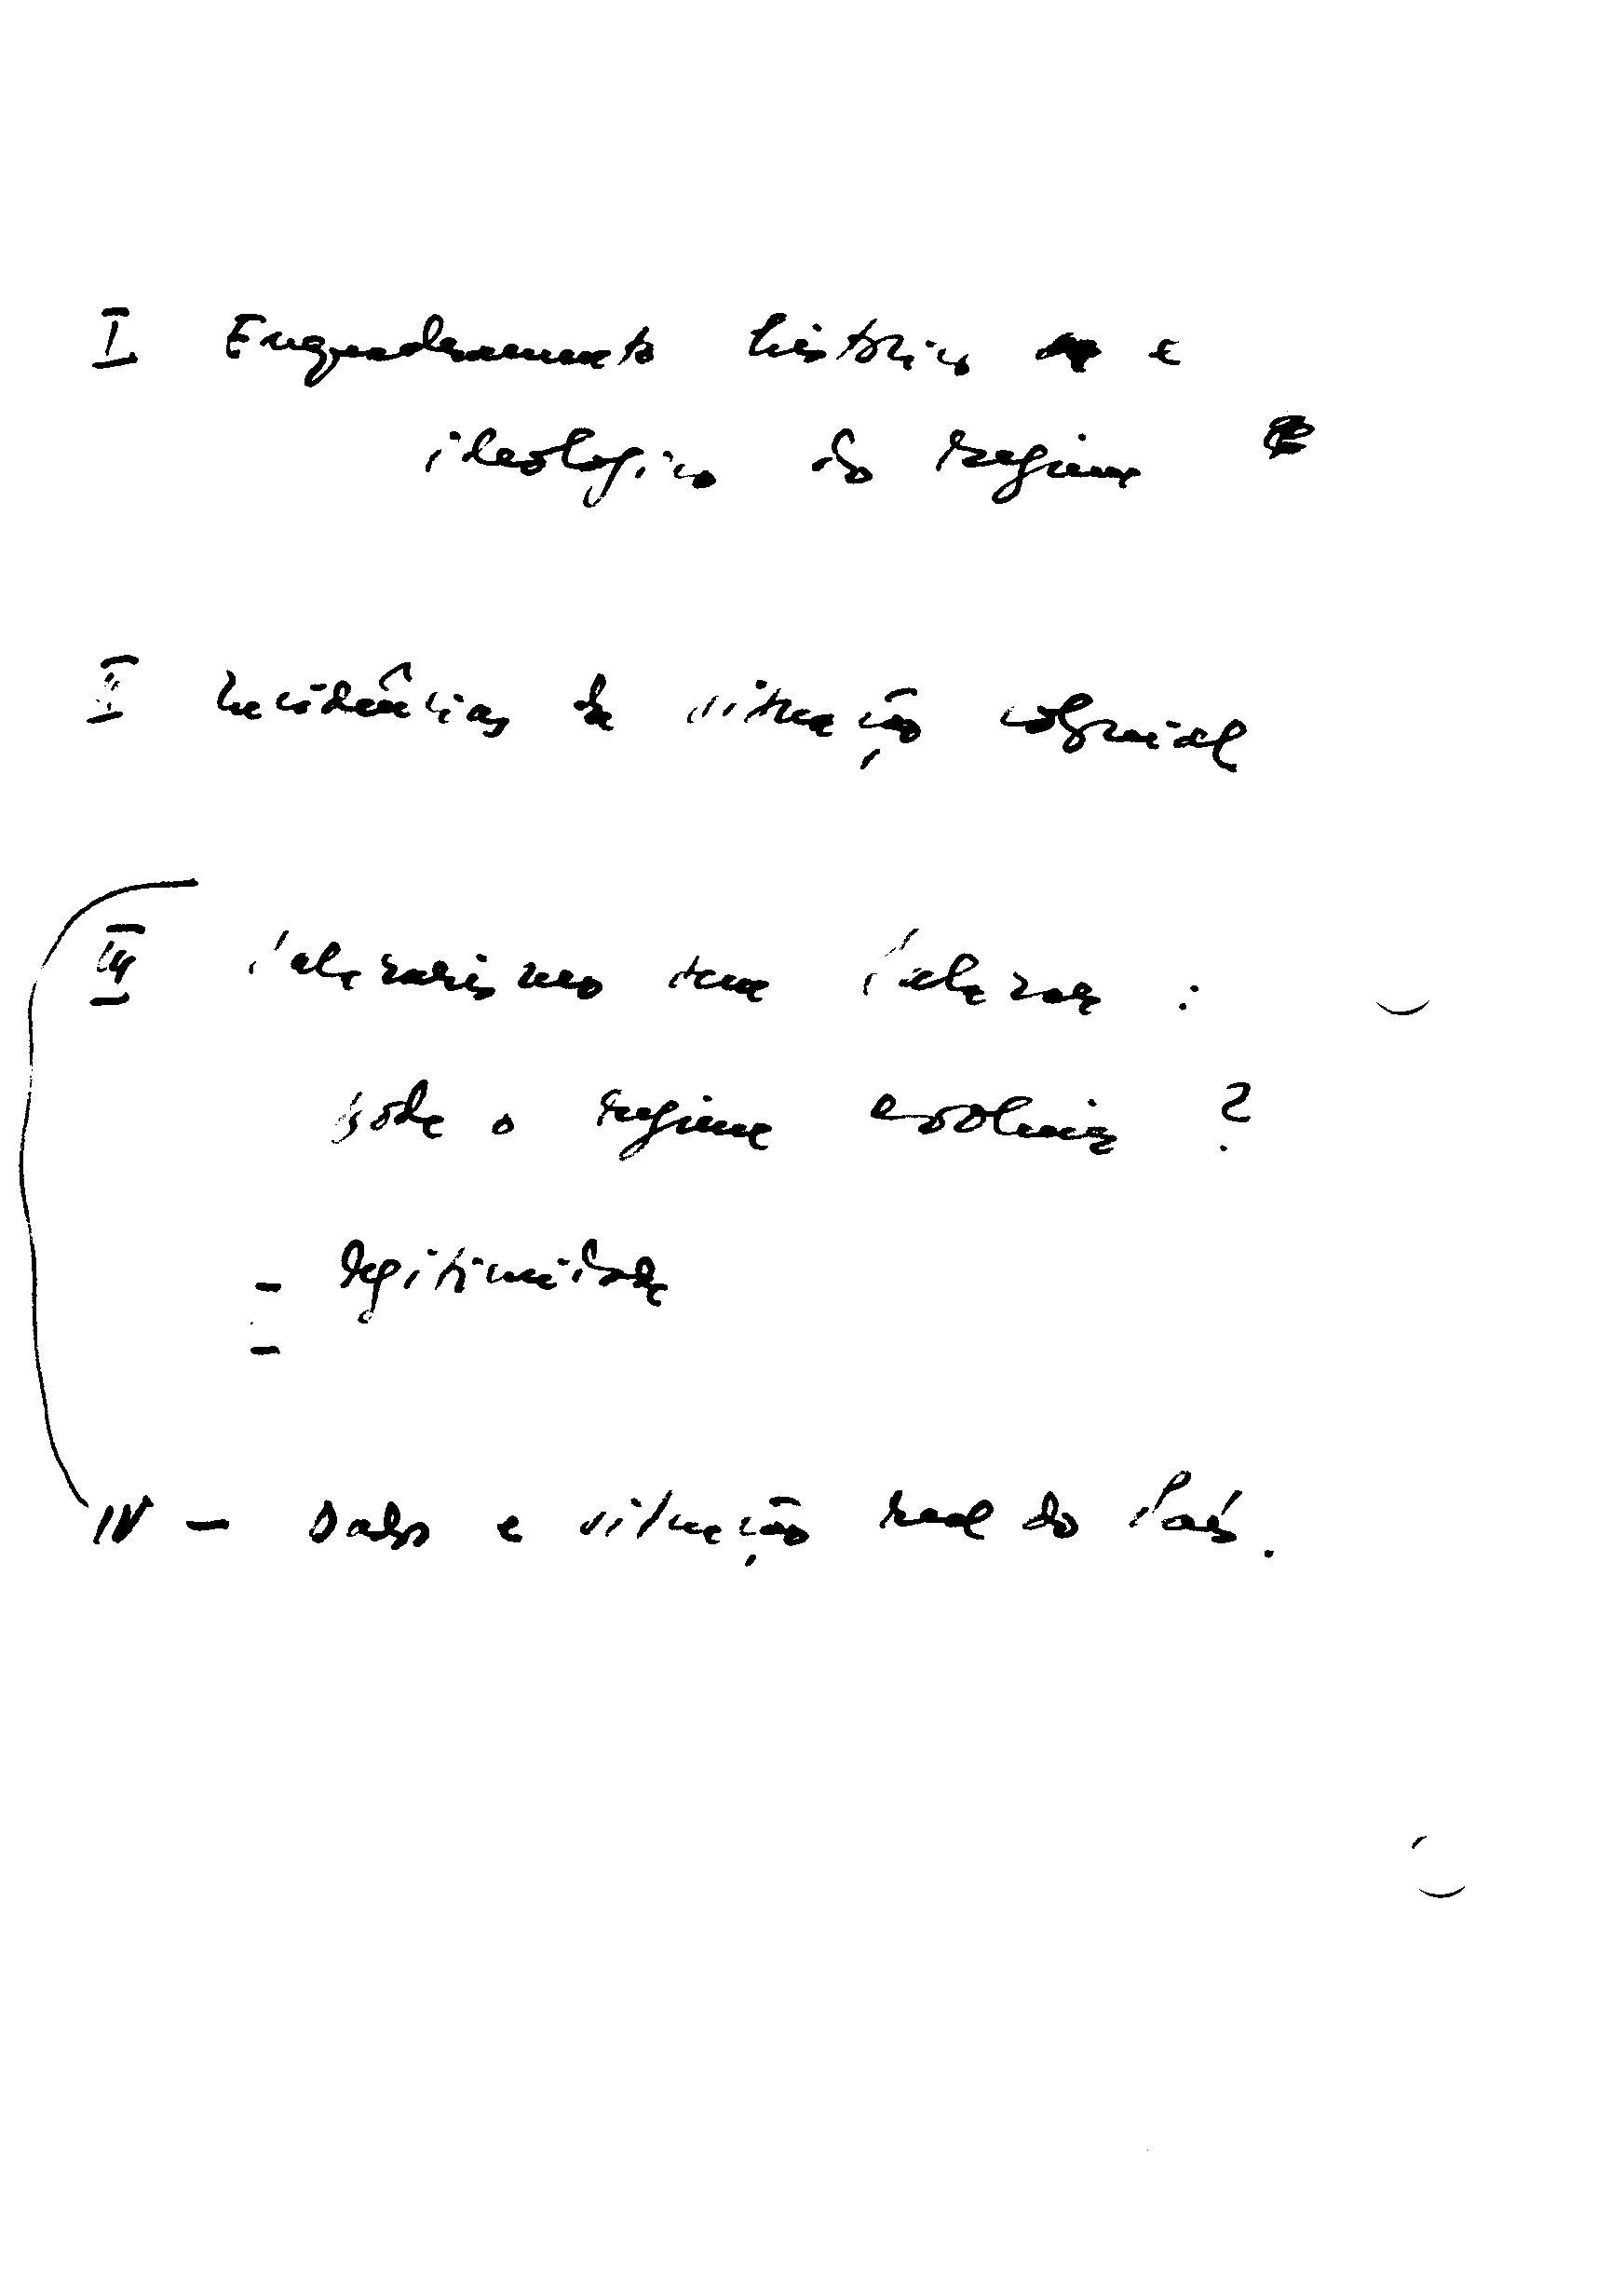 I Enquadramento histórico e
ideológico do regime
II Incidências da situação colonial
III Salazarismo sem Salazar :
pode o regime evoluir ?
- legitimidade
-
IV - Dados e situação real do País.